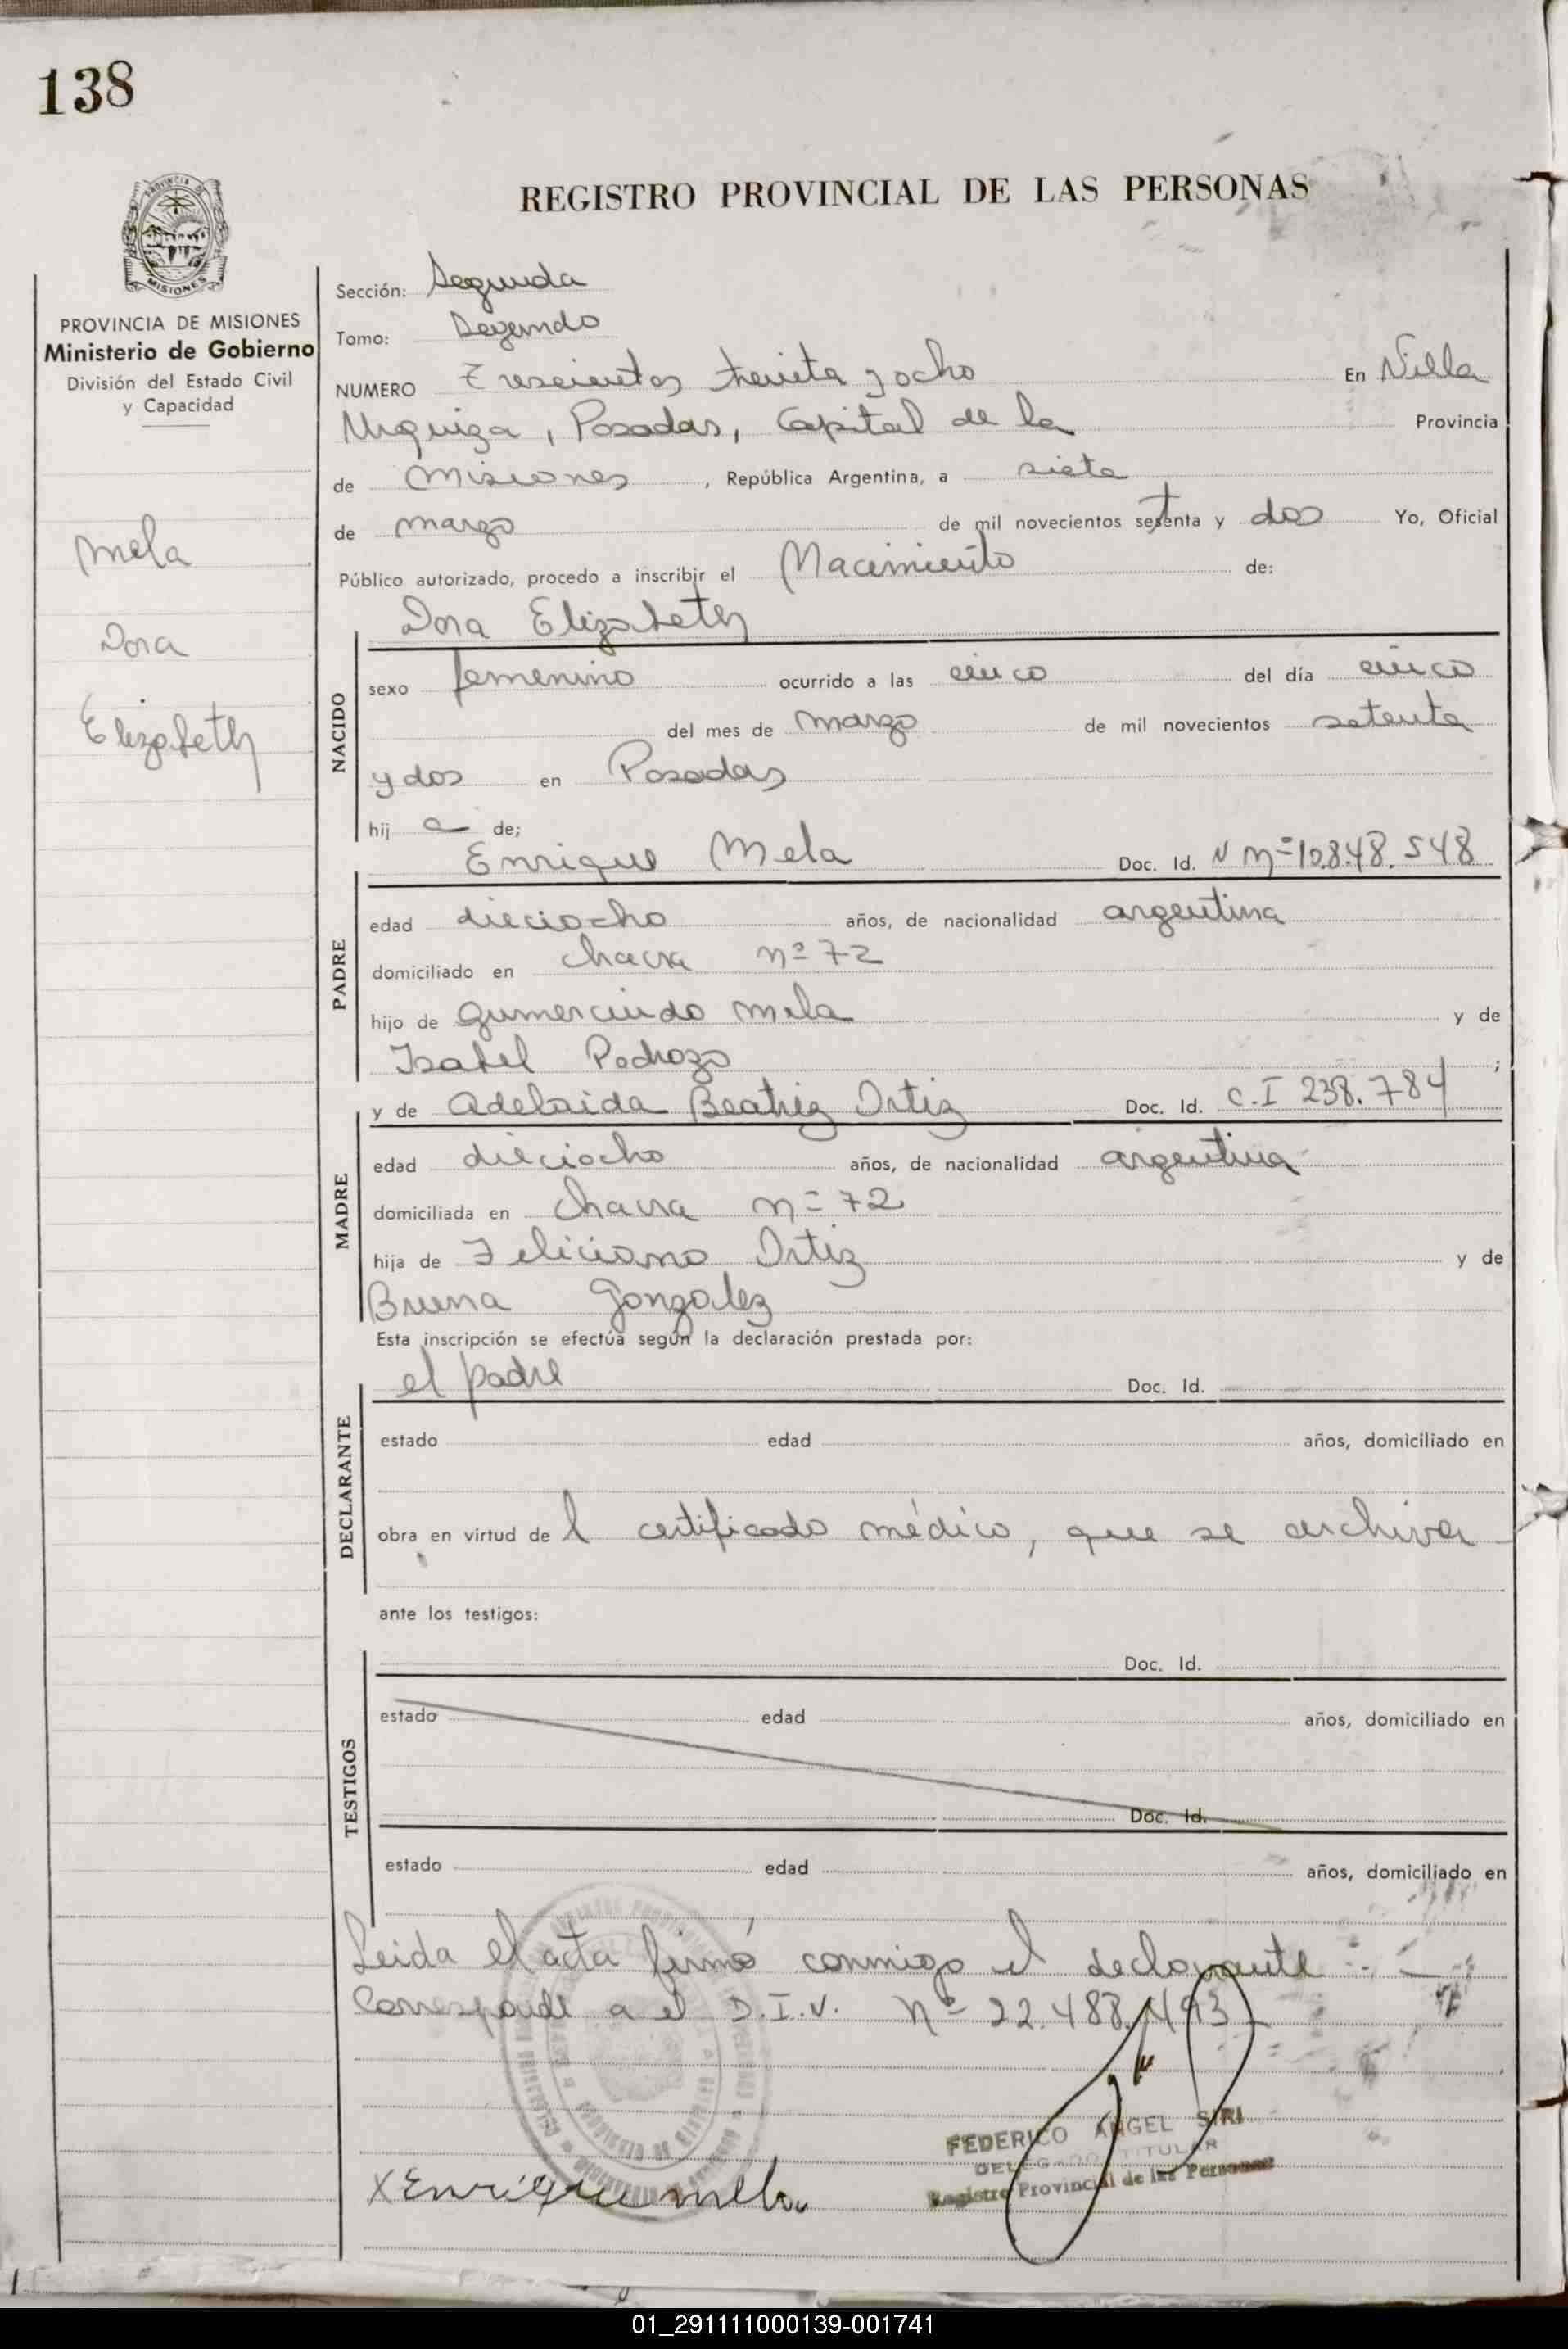 138
PROVINCIA DE MISIONES
REGISTRO PROVINCIAL DE LAS PERSONAS
PROVINCIA DE MISIONES
Ministerio de Gobierno
División del Estado Civil
y Capacidad
Mela
Dora
Elizabeth
Sección: Segunda
Tomo: Segundo
NUMERO Trescientos treinta y ocho En Villa
Urquiza, Posadas, Capital de la Provincia
de Misiones, República Argentina, a siete
de marzo de mil novecientos setenta y dos Yo, Oficial
Público autorizado, procedo a inscribir el Nacimiento de:
Dora Elizabeth
NACIDO
sexo femenino ocurrido a las cinco del día cinco
del mes de marzo de mil novecientos setenta
y dos en Posadas
hij a de;
Enrique Mela Doc. Id. N m=10.848.548
PADRE
edad dieciocho años, de nacionalidad argentina
domiciliado en chacra nº 72
hijo de Gumercindo Mela y de
Isabel Pedrozo ;
y de Adelaida Beatriz Ortiz Doc. Id. C.I 238.784
MADRE
edad dieciocho años, de nacionalidad argentina
domiciliada en chacra nº 72
hija de Feliciano Ortiz y de
Bruna Gonzalez
Esta inscripción se efectúa según la declaración prestada por:
el padre Doc. Id.
DECLARANTE
estado edad años, domiciliado en
obra en virtud de l certificado médico, que se archiva
ante los testigos:
Doc. Id.
TESTIGOS
estado edad años, domiciliado en
Doc. Id.
estado edad años, domiciliado en
Leida el acta firmó conmigo el declarante
Corresponde a el D.I.V. Nº 22.488.493
FEDERICO ANGEL SIRI
DELEGADO TITULAR
Registro Provincial de las Personas
X Enrique mela
01_291111000139-001741